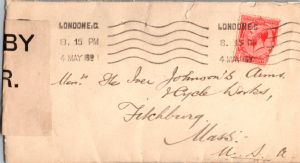 LONDON E.C.
8. 15 PM
4 MAY
LONDON E.C.
8. 15 PM
4 MAY
BY
R.
The Iver Johnson's Arms
& Cycle Works,
Fitchburg
Mass:
U. S. A